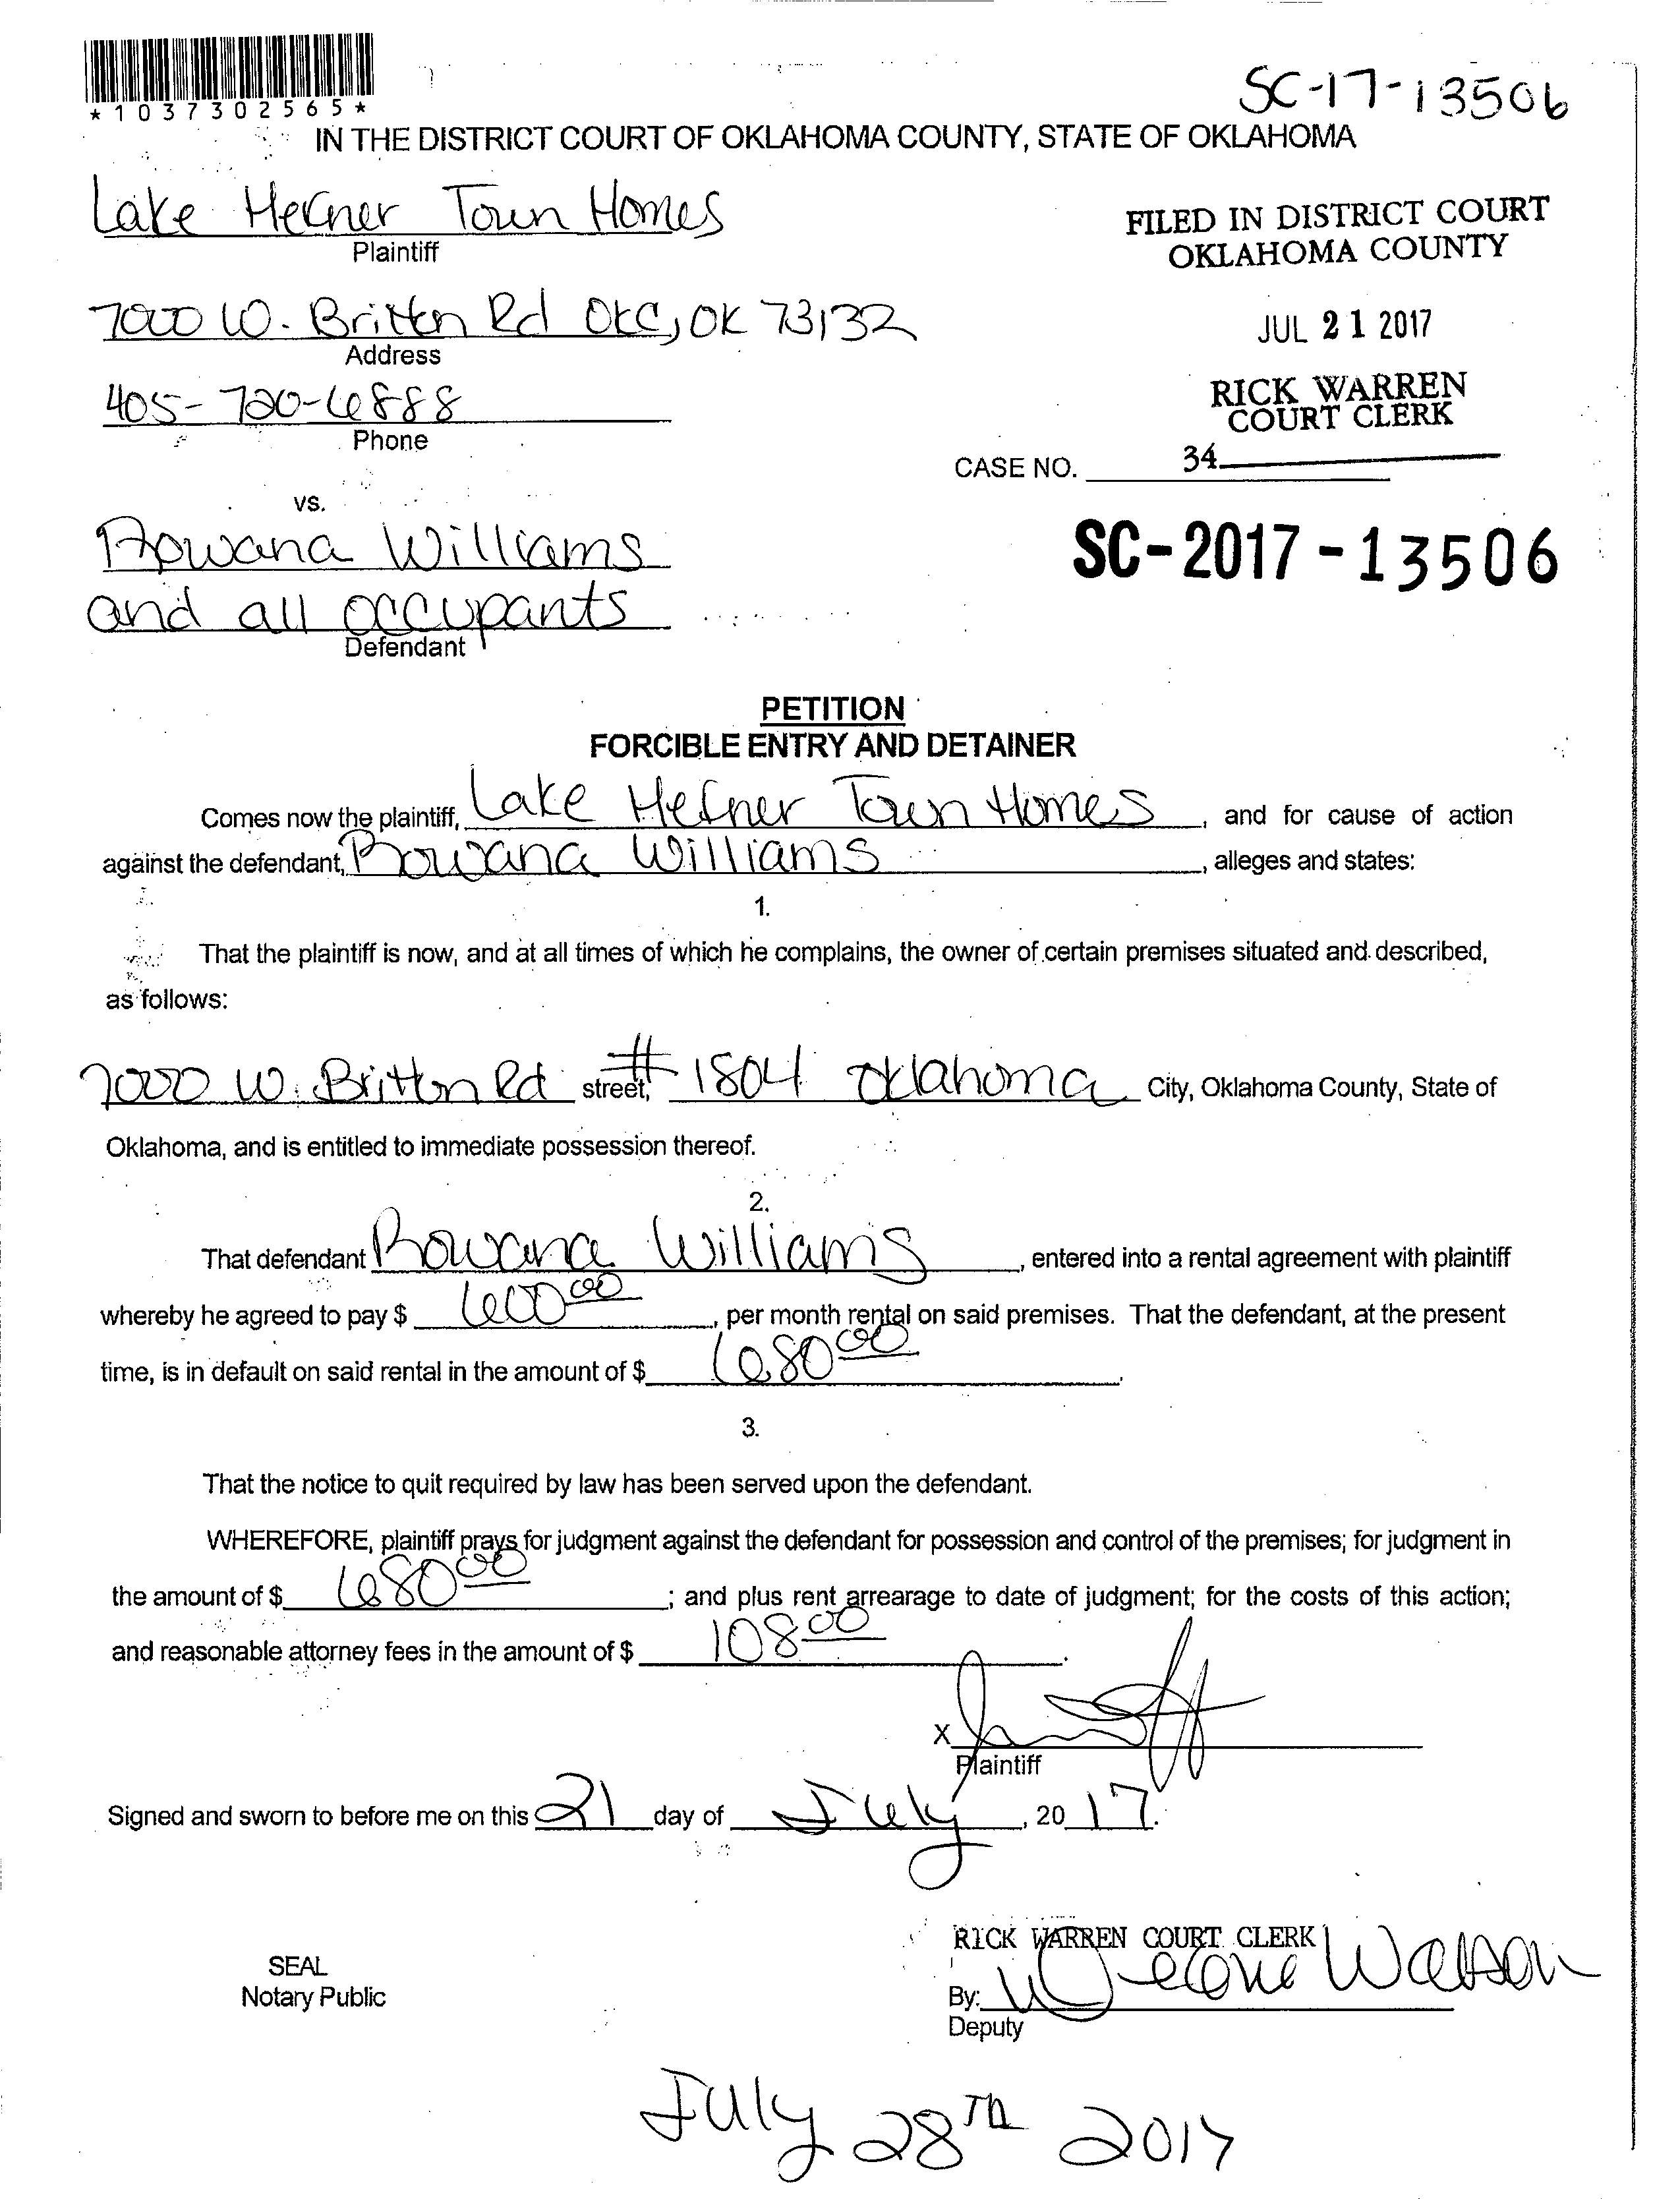 *1037302565*
SC-17-13506
IN THE DISTRICT COURT OF OKLAHOMA COUNTY, STATE OF OKLAHOMA
Lake Hefner Town Homes
Plaintiff
FILED IN DISTRICT COURT
OKLAHOMA COUNTY
7000 W. Britton Rd OKC, OK 73132
Address
JUL 21 2017
405-720-6888
Phone
RICK WARREN
COURT CLERK
CASE NO. 34
vs.
Rowana Williams
and all occupants
Defendant
SC-2017-13506
PETITION
FORCIBLE ENTRY AND DETAINER
Comes now the plaintiff, Lake Hefner Town Homes, and for cause of action
against the defendant, Rowana Williams, alleges and states:
1.
That the plaintiff is now, and at all times of which he complains, the owner of certain premises situated and described,
as follows:
7000 W. Britton Rd street, #1804 Oklahoma City, Oklahoma County, State of
Oklahoma, and is entitled to immediate possession thereof.
2.
That defendant Rowana Williams, entered into a rental agreement with plaintiff
whereby he agreed to pay $ 600.00, per month rental on said premises. That the defendant, at the present
time, is in default on said rental in the amount of $ 680.00.
3.
That the notice to quit required by law has been served upon the defendant.
WHEREFORE, plaintiff prays for judgment against the defendant for possession and control of the premises; for judgment in
the amount of $ 680.00; and plus rent arrearage to date of judgment; for the costs of this action;
and reasonable attorney fees in the amount of $ 108.00.
X
Plaintiff
Signed and sworn to before me on this 21 day of July, 2017.
SEAL
Notary Public
RICK WARREN COURT CLERK
By: Watson
Deputy
July 28th 2017